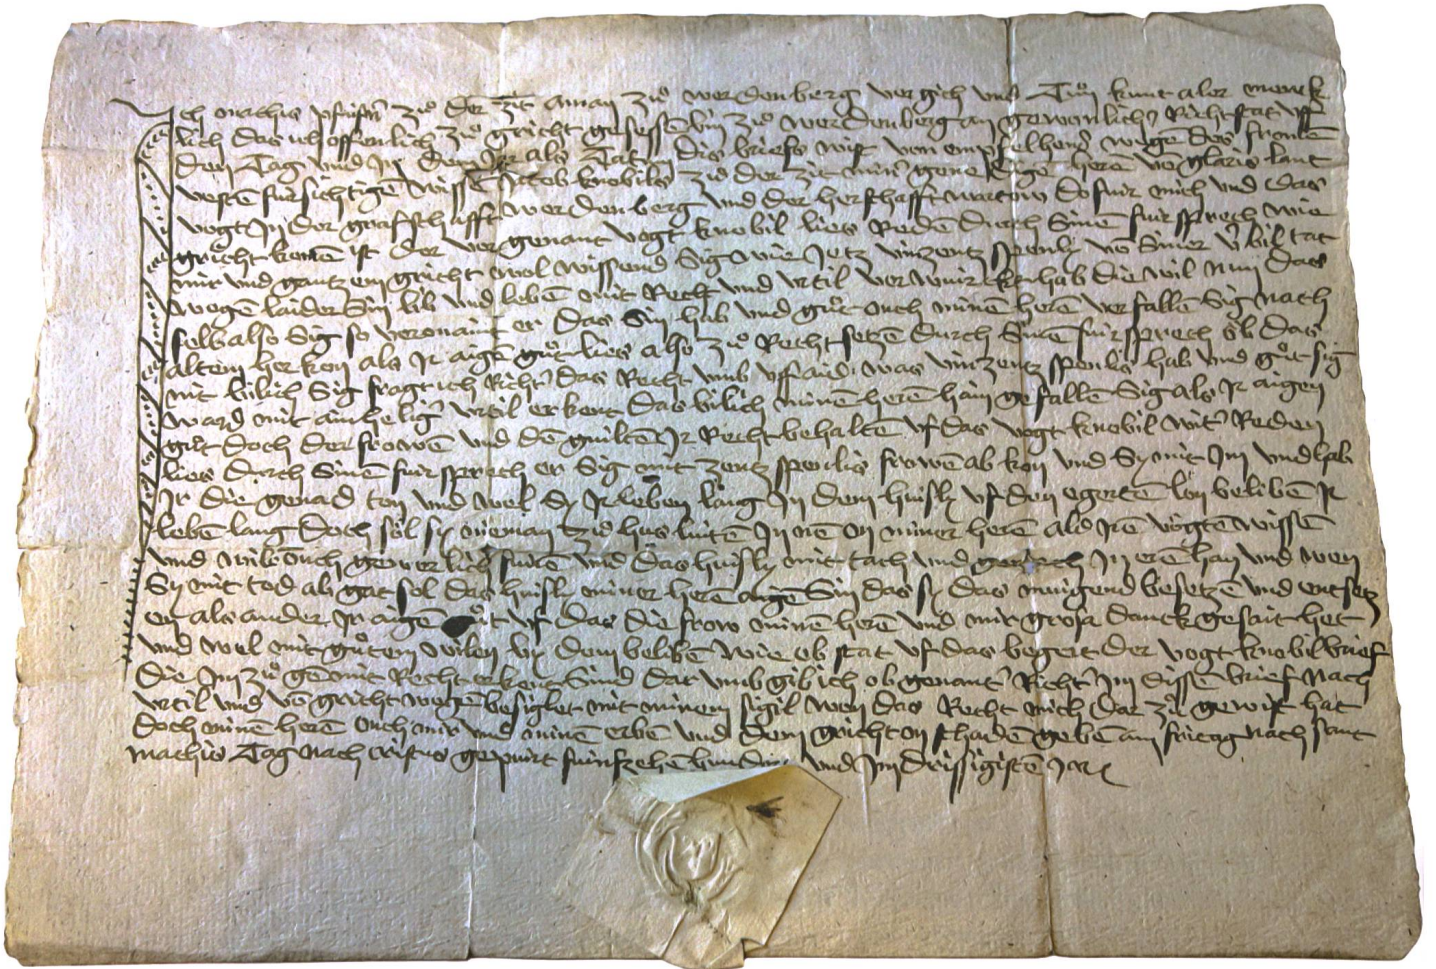 Ich mathis pfiffer zuͦ der zit aman zuͦ werdenberg vergich und Tuͦn kunt aler menck
lich das ich offenlich zuͦ gricht gesessē bin zuͦ werdenberg an gewonlicher Richtstat uff
den Tag und Jn der als Datū dis briefs wist von empfelhens wegē des fromen
vestē fürsichtigē wissē Jacob knobils zuͦ der zit miner gene herē vō glaris lant
vogt Jn der graffschafft werdenberg und der herschafft wartow do für mich und das
gricht komē ist der vorgenant vogt knobil lies Redē durch Sinē fürsprech wie
mir und gantzem gricht wol wissend Sig wie Jetz vinzentz spenly vō Siner übiltat
wegē laider Sin lib und lebē mit Recht und urtil verwürckt hab die wil nun das
selb also Sig so vermaint er das Sin hab und guͦt ouch minē herē verfallē Sig nach
altem herkon als Jr aigē guͦt lies also zuͦ Recht setzē durch Sinē fürsprech ob das
nit bilich Sig fragt ich Richter das Recht umb uff aid was vinzentz spenlis hab und guͦt sig
ward mit ainheliger urtil erkent das bilich minē herē hain gefallē Sig als Jr aigen
guͦt doch der frowē und dē gültē Jr Recht behaltē uf das vogt knobil witer Reden
lies durch Sinē fürsprech er Sig mit zentz spenlis frowē ab kon und Sy mit Jm und hab
Jr die genad ton und wel Sy Jr leben lang Jn dem hüsly uf den egertē lon belibē Jr
lebē lang doch sol sy nieman zuͦ hus lüttē Jn nē on miner herē ald Jrē vögtē wissē
und wilē ouch gewerlich fürē und das hüsly mit tach und gemach Jn erē han und wen
Sy mit tod ab gat sol das hüsly miner herē aigē Sin das sy das mügend besetzē und entsetz
en als ander Jr aigē guͦt uf das die frow minē herē und mir gross danck gesait het
und wel mit guͦtem wilen by dem belibē wie ob stat uf das begert der vogt knobil brief
die Jm zuͦ gē mit Recht erkent Sind dar umb gib ich obgenanter Richter Jm dissē brief nach
urtil und vō gricht wegē besiglet mit minem sigil wen das Recht mich dar zuͦ gewist hat
doch minē herē ouch mir und minē erbē und dem gricht on schadē gebē am fritag nach sant
mathis Tag nach cristus gepurt fünfzehē hundert und Jm drissigistē Jar